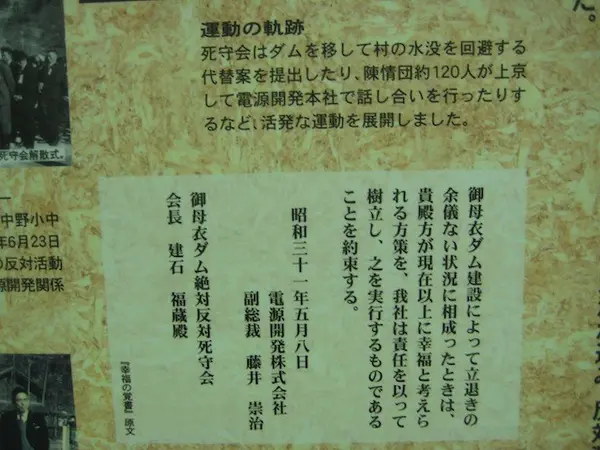 た。
運動の軌跡
死守会はダムを移して村の水没を回避する
代替案を提出したり、陳情団約120人が上京
して電源開発本社で話し合いを行ったりす
るなど、活発な運動を展開しました。
死守会解散式。
中野小中
年6月23日
の反対活動
原開発関係
御母衣ダム建設によって立退きの
余儀ない状況に相成ったときは、
貴殿方が現在以上に幸福と考えら
れる方策を、我社は責任を以って
樹立し、之を実行するものである
ことを約束する。
昭和三十一年五月八日
電源開発株式会社
副総裁 藤井 崇治
御母衣ダム絶対反対死守会
会長 建石 福蔵殿
『幸福の覚書』原文